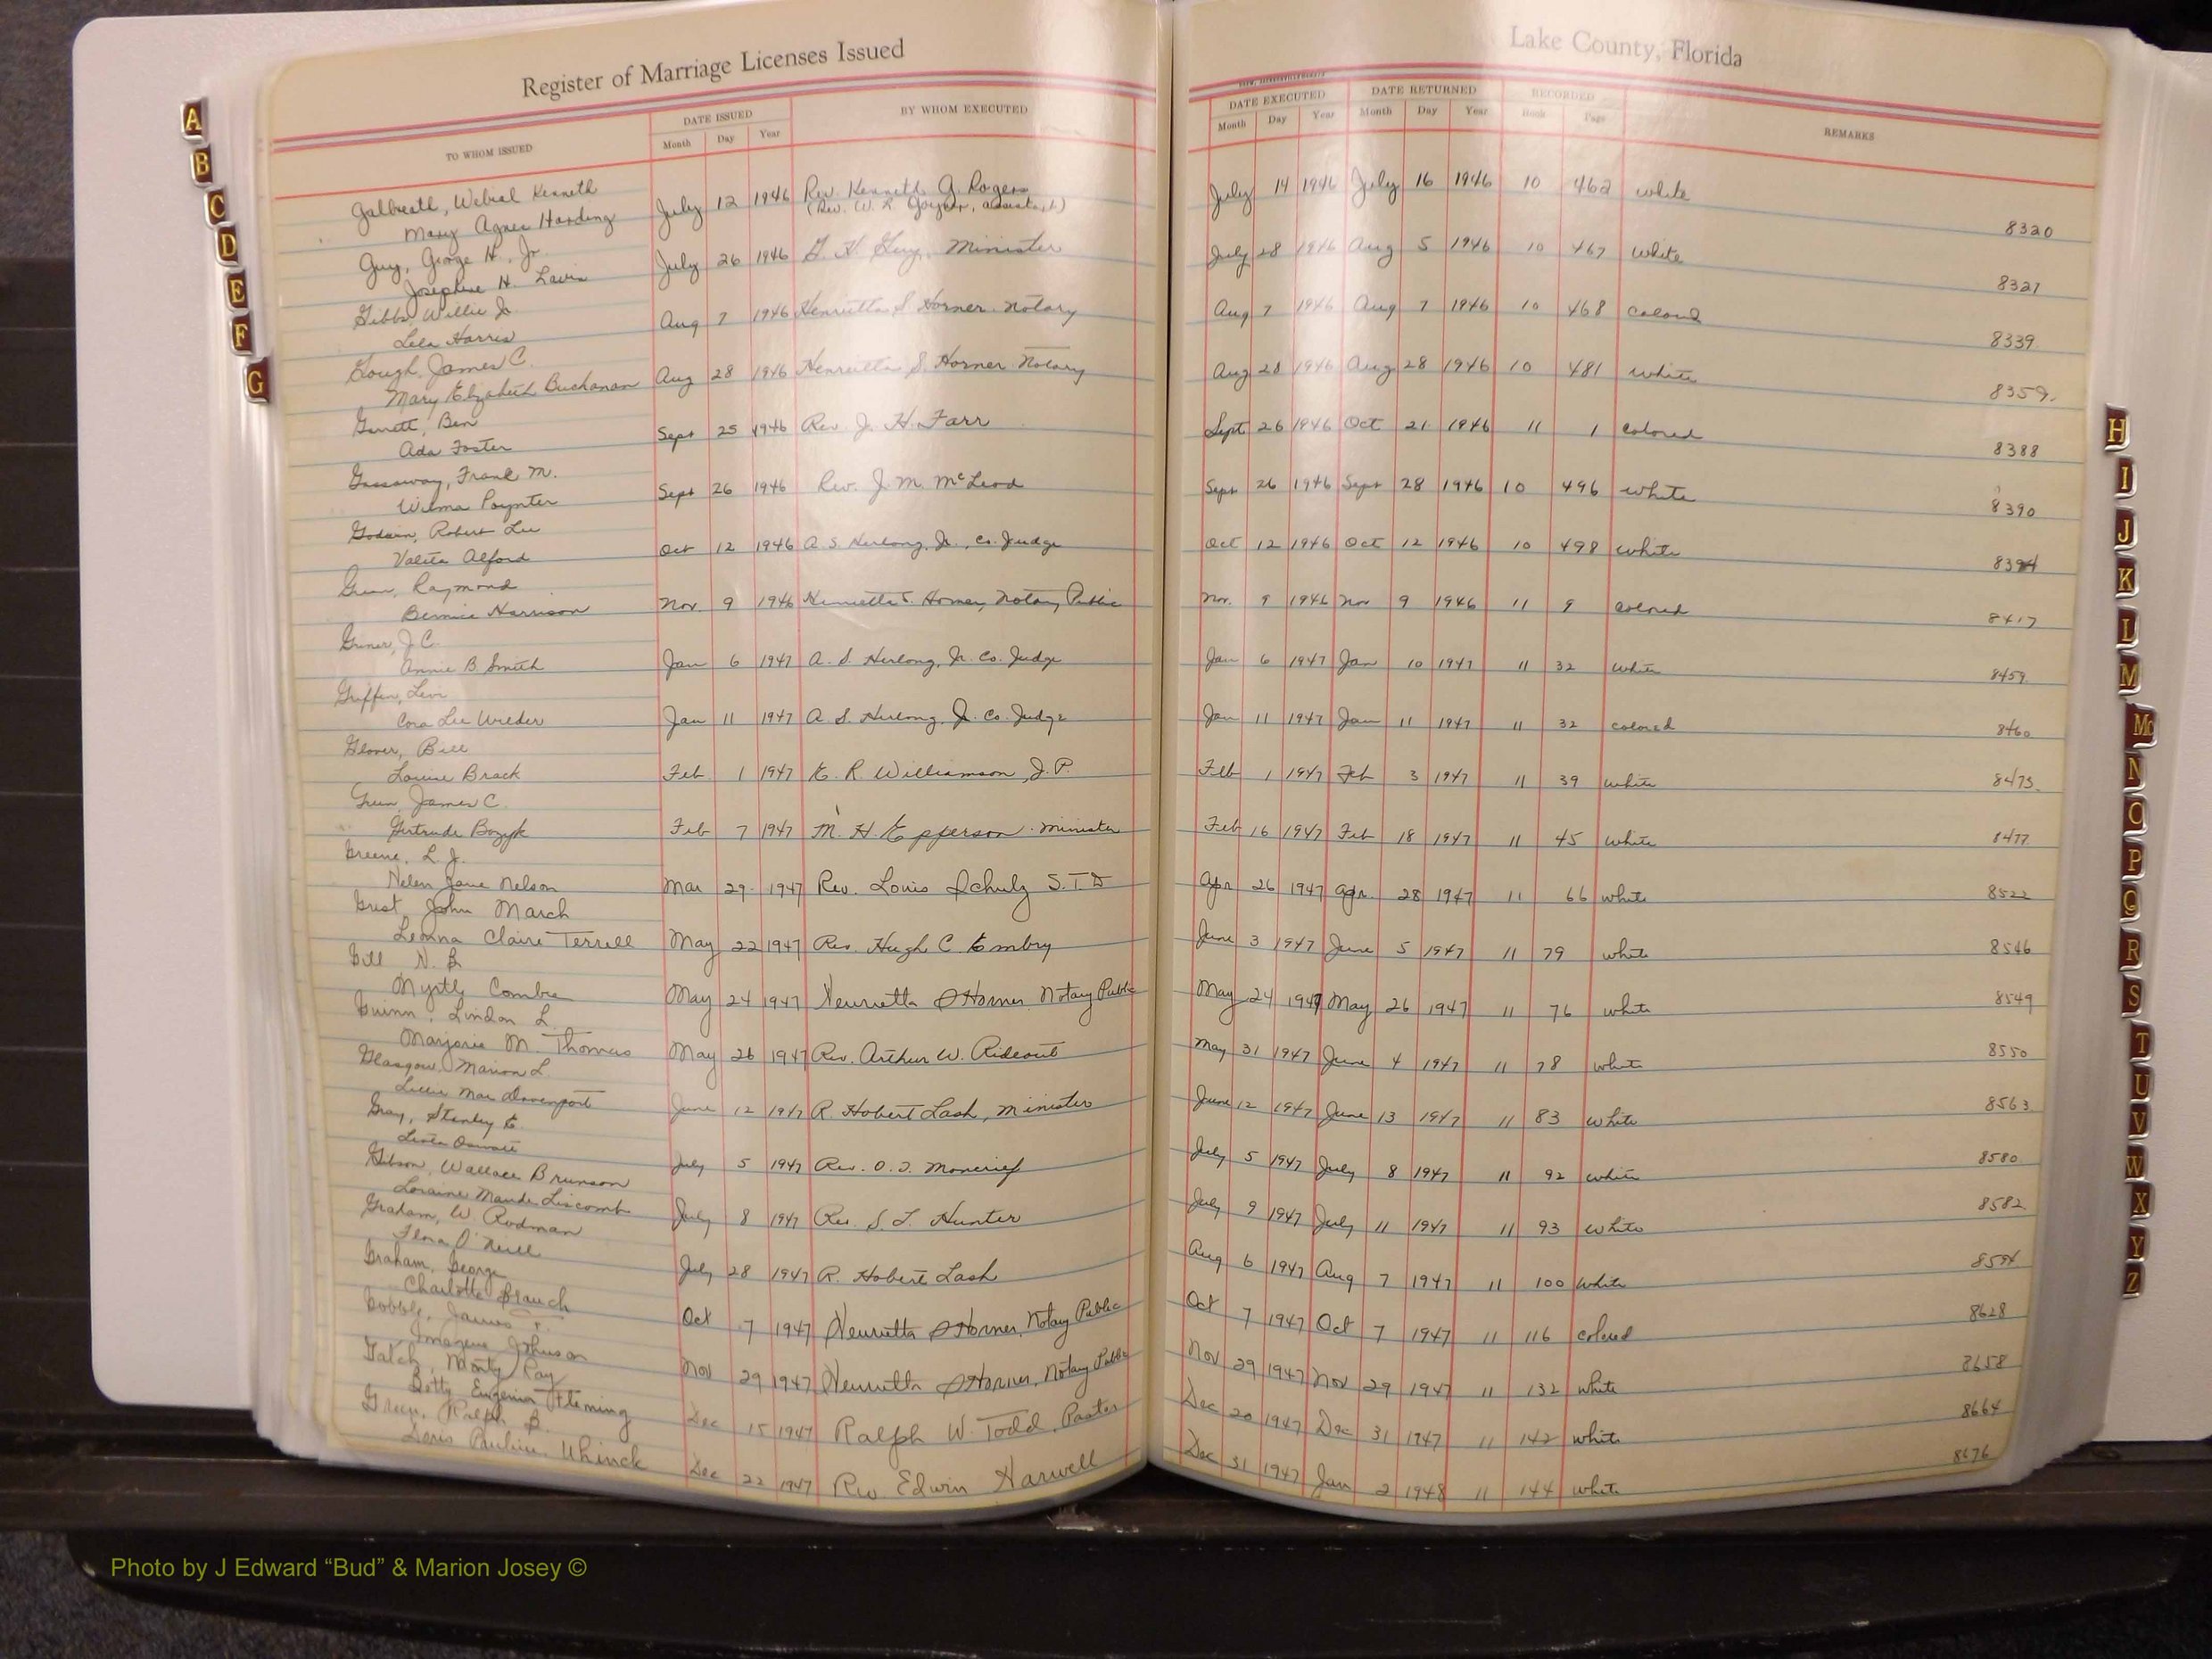 Register of Marriage Licenses Issued
Lake County, Florida
TO WHOM ISSUED DATE ISSUED Month Day Year BY WHOM EXECUTED DATE EXECUTED Month Day Year DATE RETURNED Month Day Year RECORDED Book Page REMARKS
Galbreath, Kenneth
Mary Agnes Harding July 12 1946 Rev. Kenneth G. Rogers (Rev. W. R. assistant) July 14 1946 July 16 1946 10 462 white 8320
Guy, George H., Jr.
Josephine H. July 26 1946 G. H. Guy, Minister July 28 1946 Aug 5 1946 10 467 white 8327
Gibbs, Willie Jr
Lela Harris Aug 7 1946 Henrietta S Horner Notary Aug 7 1946 Aug 7 1946 10 468 colored 8339
Gough, James C.
Mary Elizabeth Buchanan Aug 28 1946 Henrietta S. Horner Notary Aug 28 1946 Aug 28 1946 10 481 white 8359
Garrett, Ben
Ada Foster Sept 25 1946 Rev. J. H. Farr Sept 26 1946 Oct 21 1946 11 1 colored 8388
Gassaway, Frank M.
Wilma Poynter Sept 26 1946 Rev. J. M. McLeod Sept 26 1946 Sept 28 1946 10 496 white 8390
Godwin, Robert Lee
Valita Alford Oct 12 1946 A. S. Herlong, Jr., Co. Judge Oct 12 1946 Oct 12 1946 10 498 white 8394
Green, Raymond
Bernice Harrison Nov. 9 1946 Henrietta S. Horner, Notary Public Nov. 9 1946 Nov 9 1946 11 9 colored 8417
Griner, J. C.
Annie B. Smith Jan 6 1947 A. S. Herlong, Jr. Co. Judge Jan 6 1947 Jan 10 1947 11 32 white 8459
Griffin, Levi
Cora Lee Wilder Jan 11 1947 A. S. Herlong, Jr. Co. Judge Jan 11 1947 Jan 11 1947 11 32 colored 8460
Glover, Bill
Louise Brack Feb. 1 1947 E. R. Williamson, J. P. Feb 1 1947 Feb 3 1947 11 39 white 8473
Green, James C.
Gertrude Bozyk Feb 7 1947 M. H. Epperson. Minister Feb 16 1947 Feb 18 1947 11 45 white 8477
Greene, L. J.
Helen Jane Nelson Mar 29 1947 Rev. Louis Schulz S.T.D Apr 26 1947 Apr. 28 1947 11 66 white 8522
Grist, John March
Leonna Claire Terrell May 22 1947 Rev. Hugh C. Embry June 3 1947 June 5 1947 11 79 white 8546
Gill N. B
Myrtle Combee May 24 1947 Henrietta S Horner Notary Public May 24 1947 May 26 1947 11 76 white 8549
Guinn, Lindon L.
Marjorie M. Thomas May 26 1947 Rev. Arthur W. Rideout May 31 1947 June 4 1947 11 78 white 8550
Glasgow, Marion L.
Lillie Mae Davenport June 12 1947 R. Hobert Lash, Minister June 12 1947 June 13 1947 11 83 white 8563
Gray, Stanley E.
July 5 1947 Rev. O. J. Moncrief July 5 1947 July 8 1947 11 92 white 8580
Gibson, Wallace Brunson
Loraine Maude Liscomb July 8 1947 Rev. S. L. Hunter July 9 1947 July 11 1947 11 93 white 8582
Graham, W. Rodman
Flora O'Neill July 28 1947 R. Hobert Lash Aug 6 1947 Aug 7 1947 11 100 white 8594
Graham, George
Charlotte Branch Oct 7 1947 Henrietta S Horner, Notary Public Oct 7 1947 Oct 7 1947 11 116 colored 8628
James T.
Imogene Johnson Nov 29 1947 Henrietta S Horner, Notary Public Nov 29 1947 Nov 29 1947 11 132 white 8658
Gatch, Monty Ray
Betty Eugenia Fleming Dec 15 1947 Ralph W. Todd, Pastor Dec 20 1947 Dec 31 1947 11 142 white 8664
Green, Ralph B.
Doris Pauline Whinck Dec 22 1947 Rev. Edwin Harwell Dec 31 1947 Jan 2 1948 11 144 white 8676
A
B
C
D
E
F
G
H
I
J
K
L
M
Mc
N
O
P
Q
R
S
T
U
V
W
X
Y
Z
Photo by J Edward “Bud” & Marion Josey ©